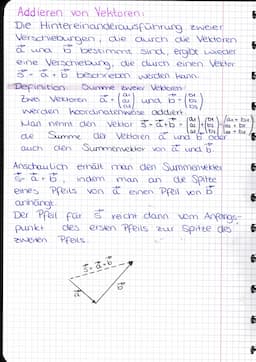 Addieren von Vektoren:
Die Hintereinanderausführung zweier
Verschiebungen, die durch die Vektoren
a⃗ und b⃗ bestimmt sind, ergibt wieder
eine Verschiebung, die durch einen Vektor
s⃗ = a⃗ + b⃗ beschrieben werden kann.
Definition: Summe zweier Vektoren:
Zwei Vektoren a⃗ = (a₁ a₂ a₃) und b⃗ = (b₁ b₂ b₃)
werden koordinatenweise addiert.
Man nennt den Vektor s⃗ = a⃗ + b⃗ = (a₁ a₂ a₃) + (b₁ b₂ b₃) = (a₁ + b₁ a₂ + b₂ a₃ + b₃)
die Summe der Vektoren a⃗ und b⃗ oder
auch den Summenvektor von a⃗ und b⃗.
Anschaulich erhält man den Summenvektor
s⃗ = a⃗ + b⃗, indem man an die Spitze
eines Pfeils von a⃗ einen Pfeil von b⃗
anhängt.
Der Pfeil für s⃗ reicht dann vom Anfangs-
punkt des ersten Pfeils zur Spitze des
zweiten Pfeils.
s⃗ = a⃗ + b⃗
a⃗
b⃗